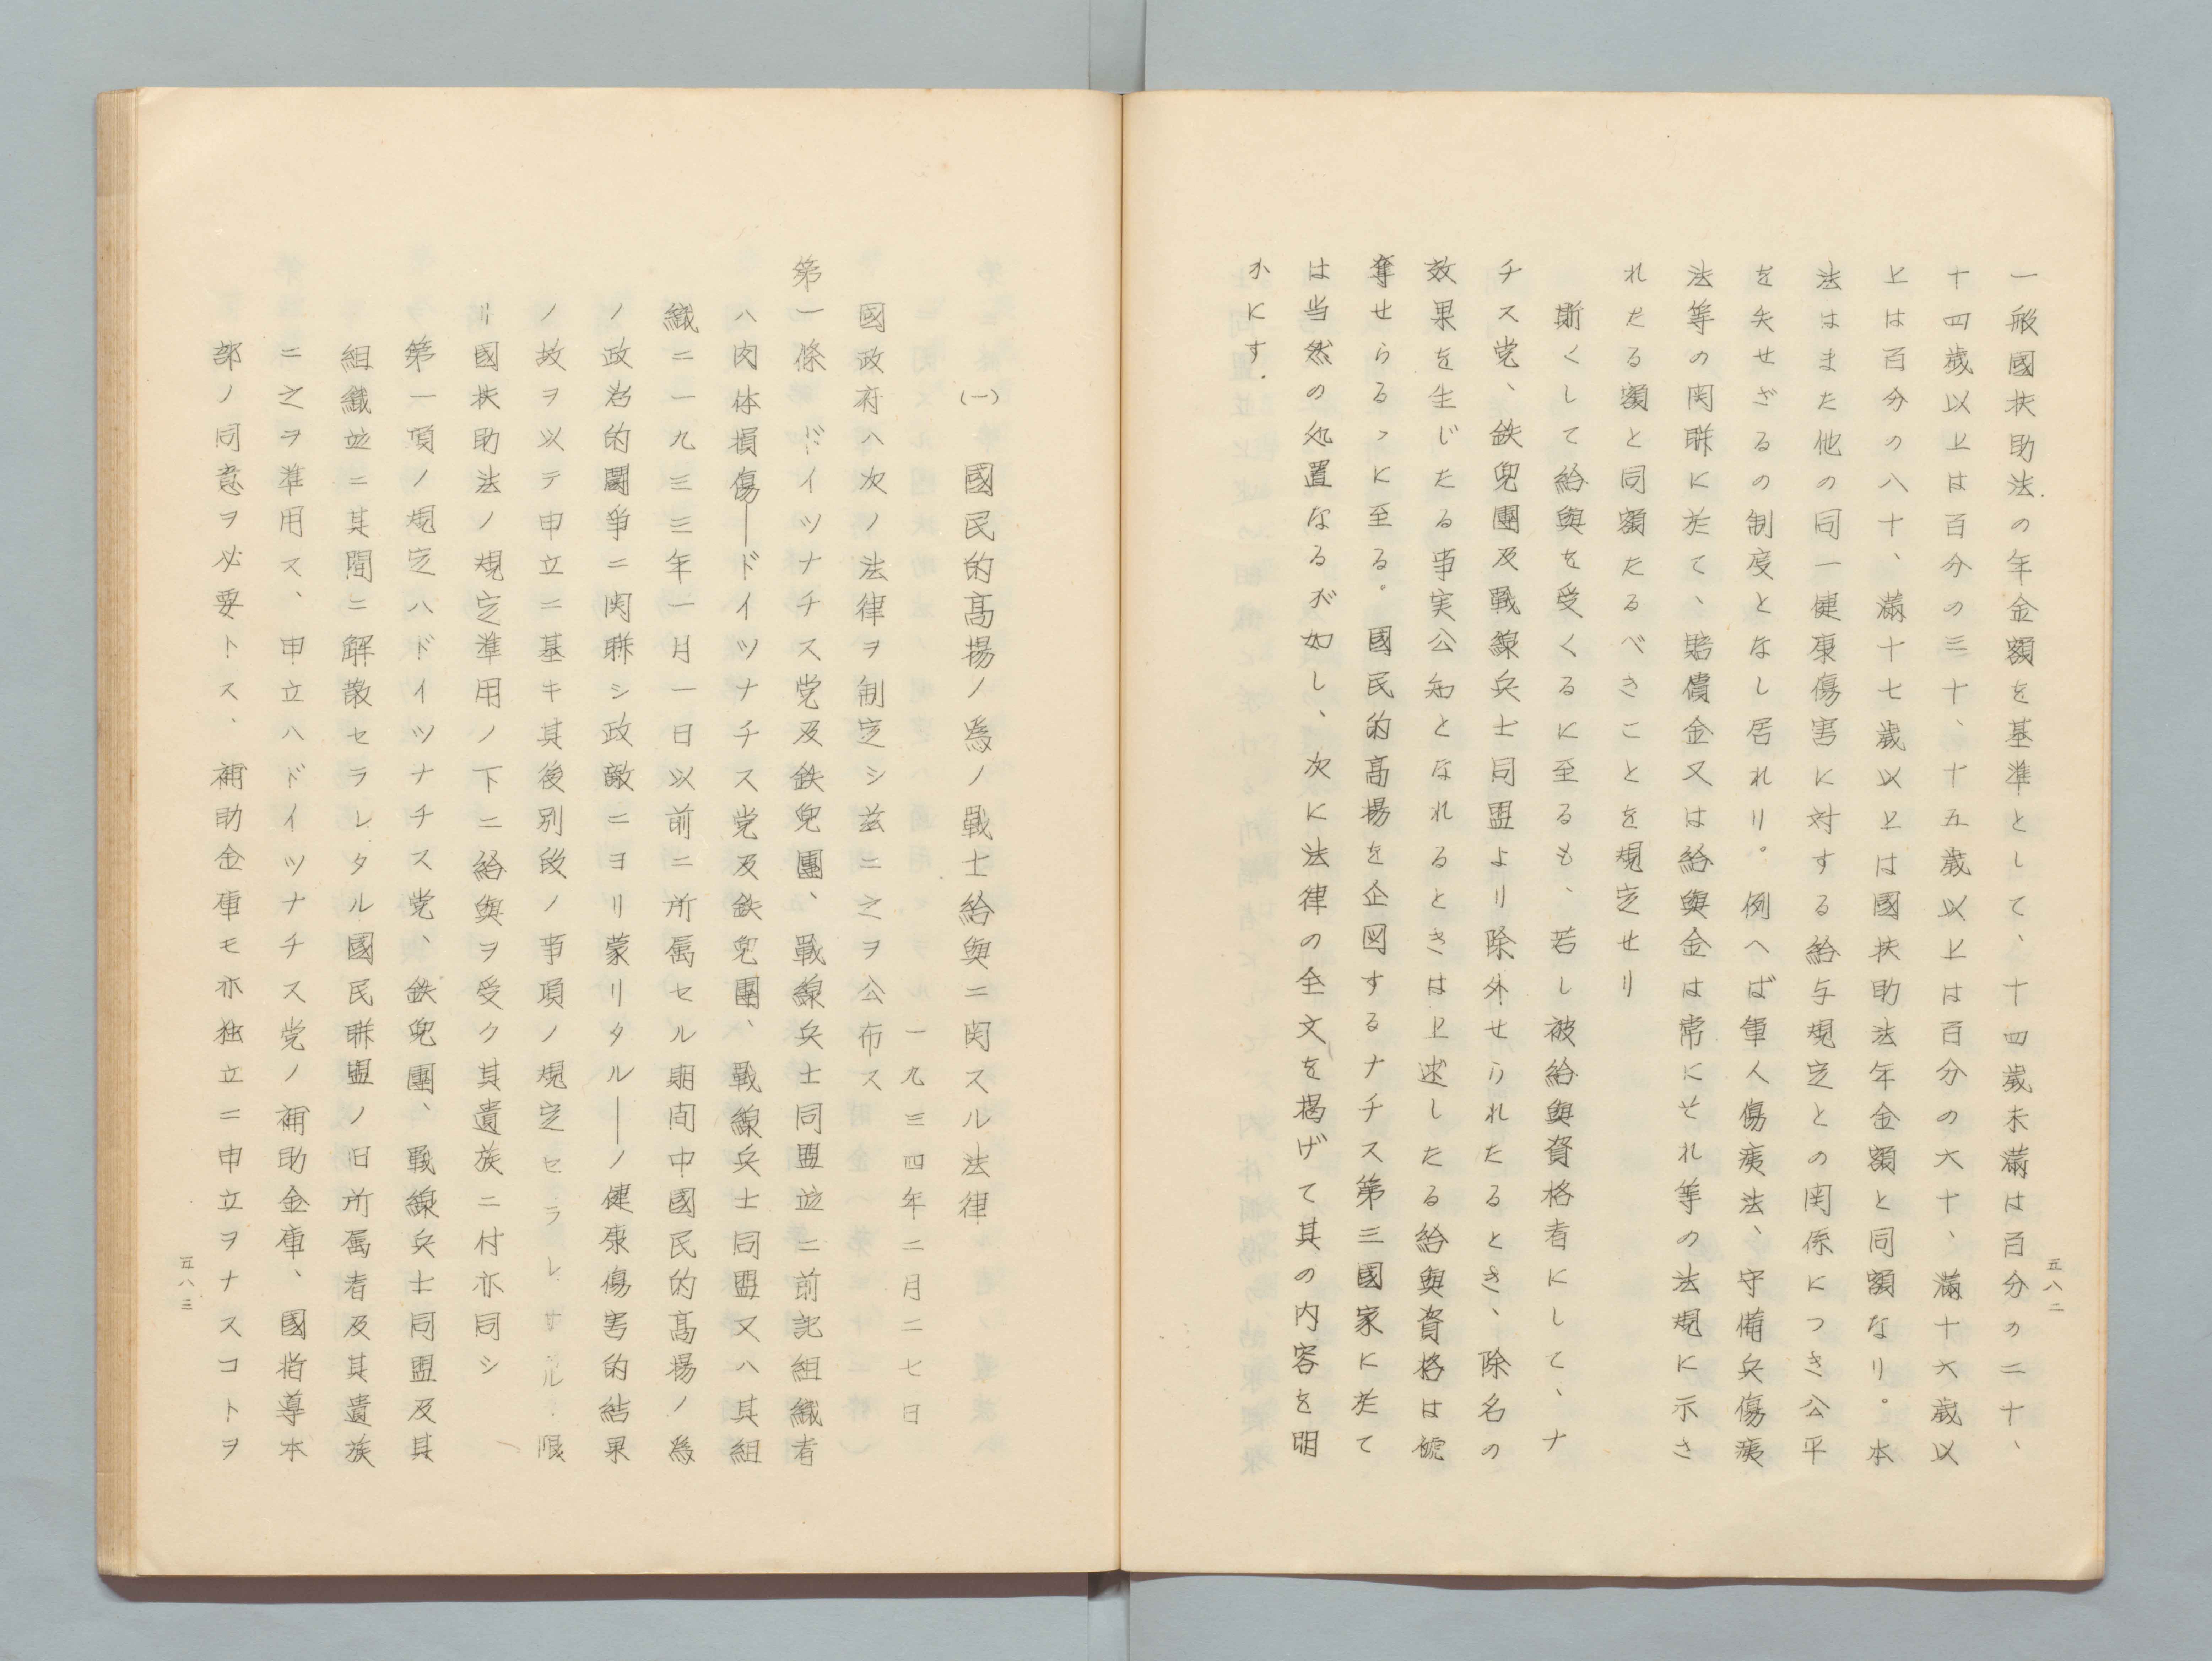 一般國扶助法の年金額を基準として、十四歲未滿は百分の二十、
十四歲以上は百分の三十、十五歲以上は百分の六十、滿十六歲以
上は百分の八十、滿十七歲以上は國扶助法年金額と同額なり。本
法はまた他の同一健康傷害に対する給与規定との関係につき公平
を失せざるの制度となし居れり。例へば軍人傷痍法、守備兵傷痍
法等の関聯に於て、賠償金又は給與金は常にそれ等の法規に示さ
れたる額と同額たるべきことを規定せり
斯くして給與を受くるに至るも、若し被給與資格者にして、ナ
チス党、鉄兜團及戰線兵士同盟より除外せられたるとき、除名の
效果を生じたる事実公知となれるときは上述したる給與資格は褫
奪せらるゝに至る。國民的高揚を企図するナチス第三國家に於て
は当然の処置なるが如し、次に法律の全文を揭げて其の内容を明
かにす.
五八二
(一)國民的高揚ノ爲ノ戰士給與ニ関スル法律
一九三四年二月二七日
國政府ハ次ノ法律ヲ制定シ茲ニ之ヲ公布ス
第一條 ドイツナチス党及鉄兜團、戰線兵士同盟並ニ前記組織者
ハ肉体損傷――ドイツナチス党及鉄兜團、戰線兵士同盟又ハ其組
織ニ一九三三年一月一日以前ニ所属セル期间中國民的高揚ノ爲
ノ政治的鬪爭ニ関聯シ政敵ニヨリ蒙リタル――ノ健康傷害的結果
ノ故ヲ以テ申立ニ基キ其後別段ノ事項ノ規定セラレサル限
リ國扶助法ノ規定準用ノ下ニ給與ヲ受ク其遺族ニ付亦同シ
第一項ノ規定ハドイツナチス党、鉄兜團、戰線兵士同盟及其
組織並ニ其間ニ解散セラレタル國民聯盟ノ旧所属者及其遺族
ニ之ヲ準用ス、申立ハドイツナチス党ノ補助金庫、國指導本
部ノ同意ヲ必要トス、補助金庫モ亦独立ニ申立ヲナスコトヲ
五八三